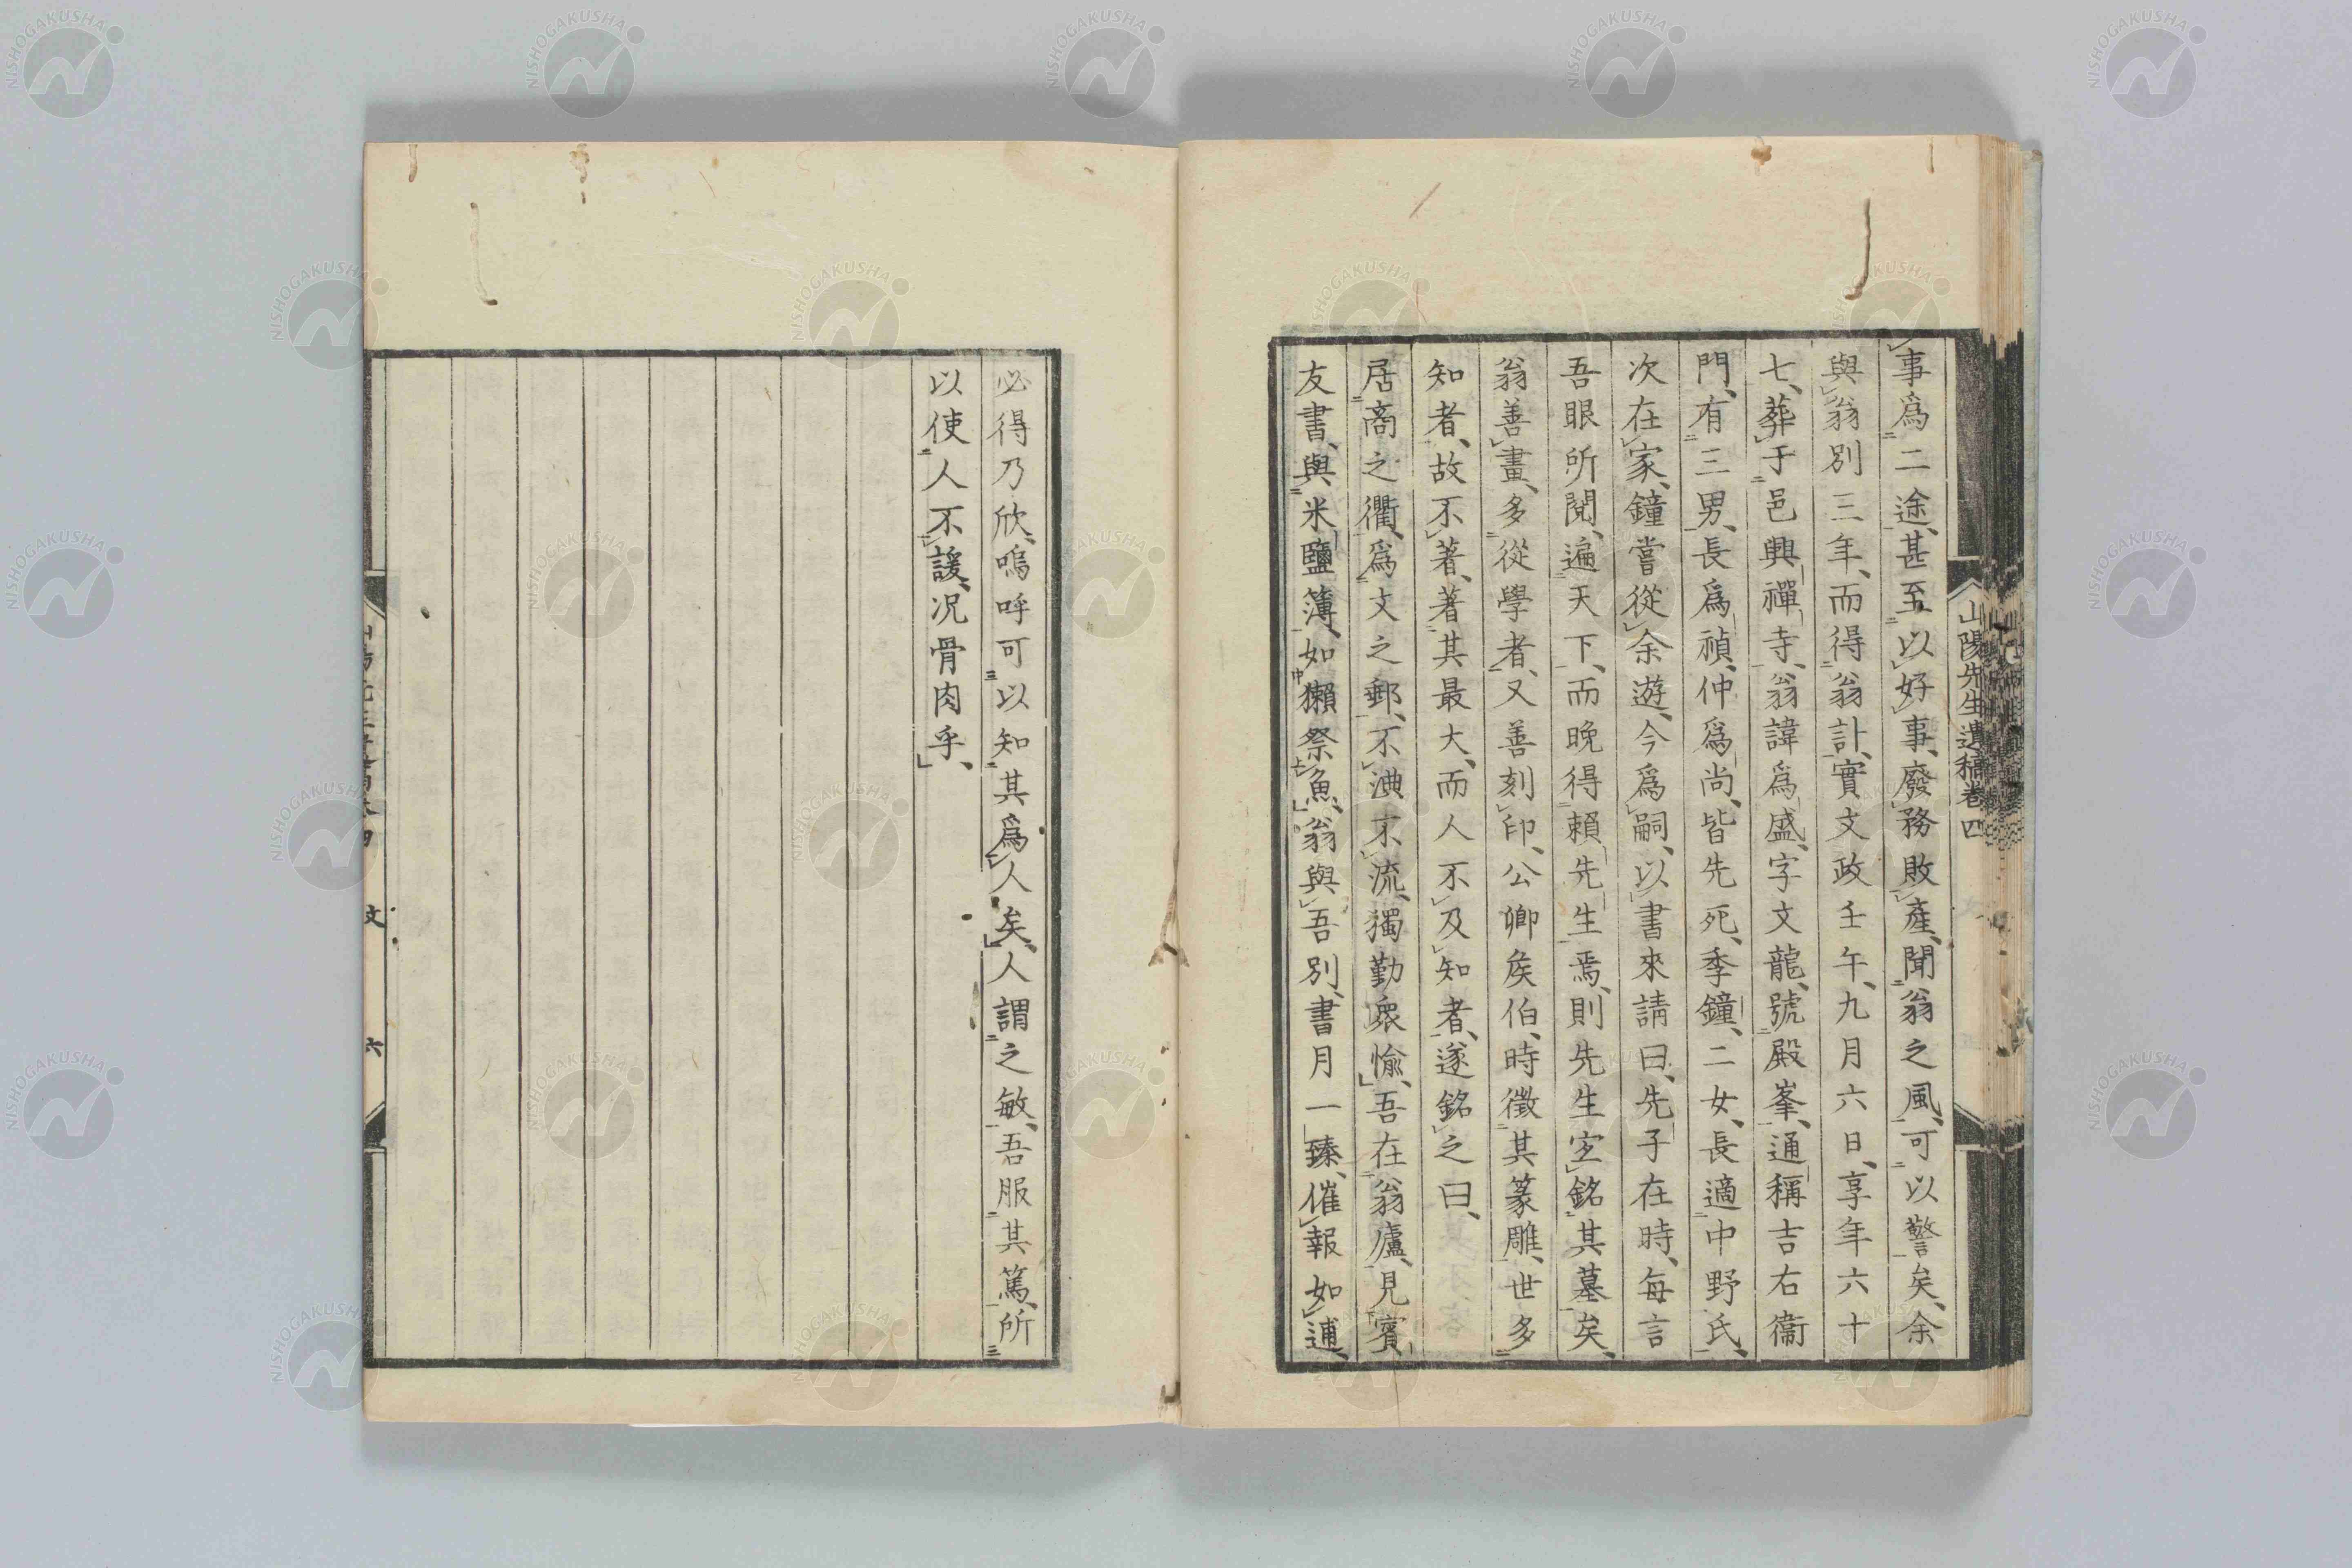 山陽先生遺稿卷四
事爲二途、甚至以好事、廢務敗產、聞翁之風、可以警矣、余
與翁別三年、而得翁訃、實文政壬午、九月六日、享年六十
七、葬于邑興禪寺、翁諱爲盛、字文龍、號殿峯、通稱吉右衞
門、有三男、長爲禎、仲爲尚、皆先死、季鐘、二女、長適中野氏、
次在家、鐘嘗從余遊、今爲嗣、以書來請曰、先子在時、每言
吾眼所閱、遍天下、而晚得賴先生焉、則先生定銘其墓矣、
翁善畫、多從學者、又善刻印、公卿矦伯、時徵其篆雕、世多
知者、故不著、著其最大、而人不及知者、遂銘之曰、
居商之衢、爲文之郵、不㴸不流、獨勤衆愉、吾在翁廬、見賓
友書、與米鹽簿、如獺祭魚、翁與吾別、書月一臻、催報如逋、
必得乃欣、嗚呼可以知其爲人矣、人謂之敏、吾服其篤、所
以使人不諼、況骨肉乎、
文
六
NISHOGAKUSHA